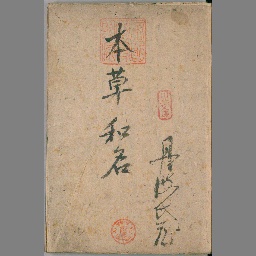 本草和名
丹波氏蔵